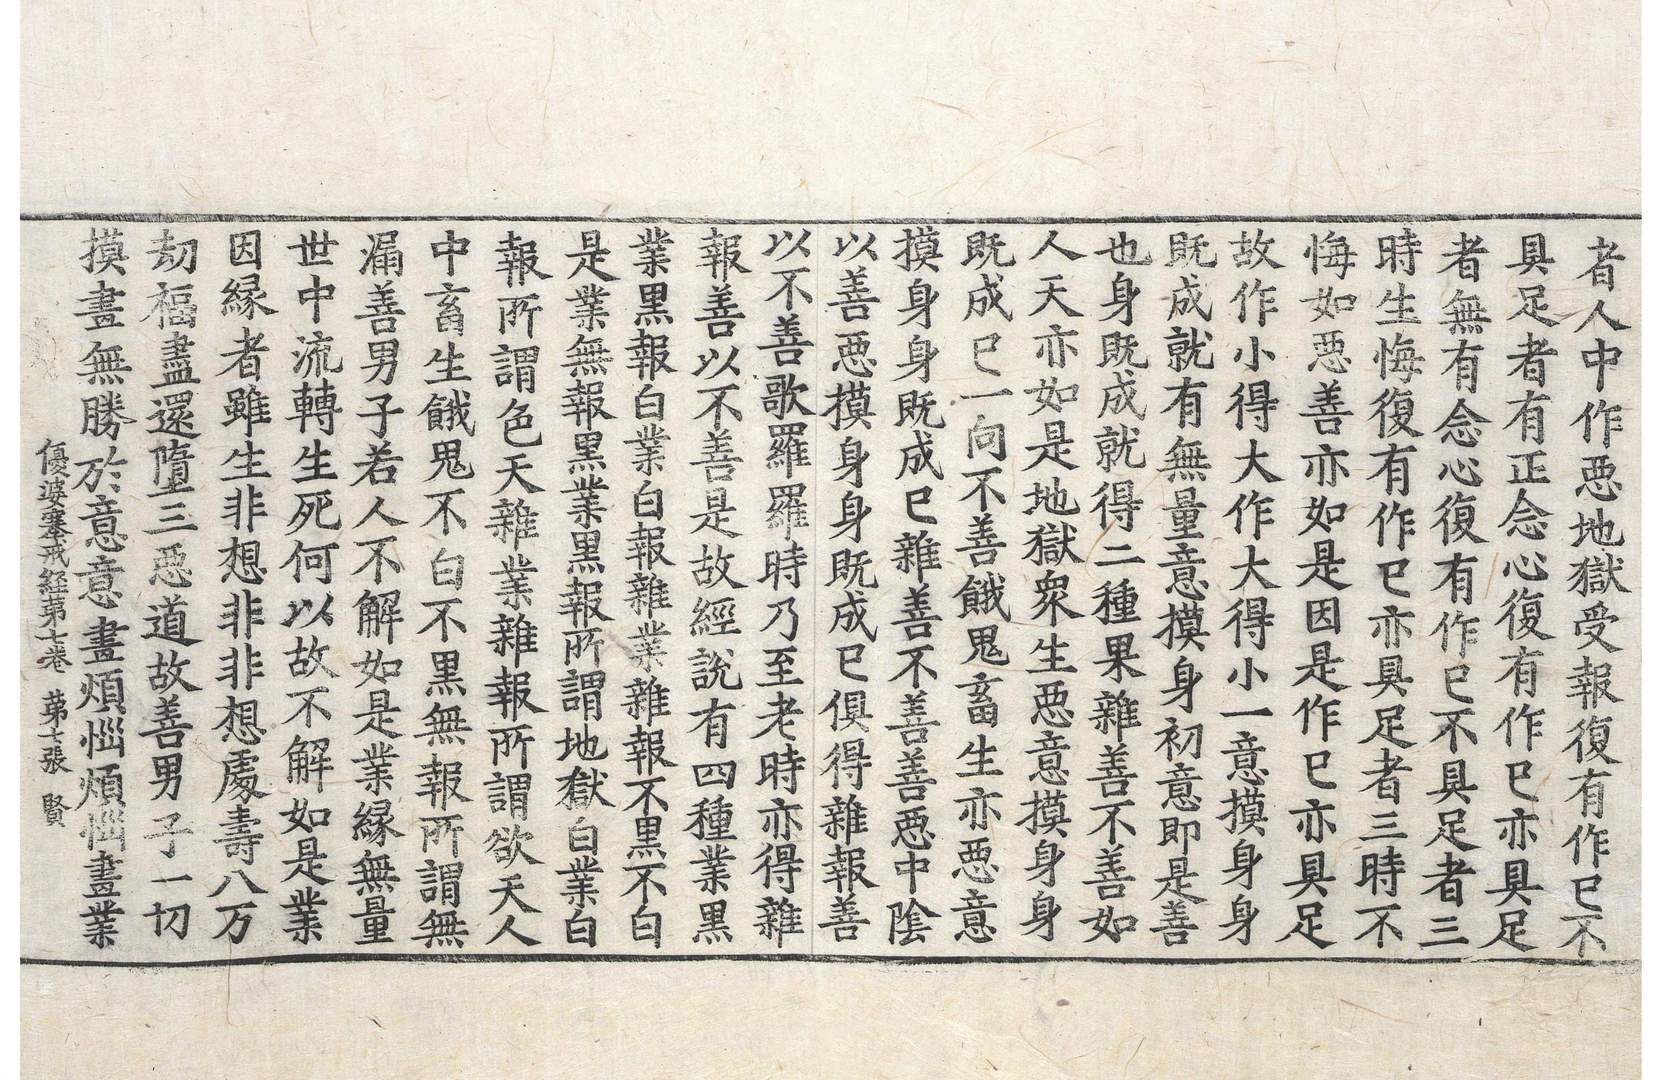 者人中作惡地獄受報復有作已不
具足者有正念心復有作已亦具足
者無有念心復有作已不具足者三
時生悔復有作已亦具足者三時不
悔如惡善亦如是因是作已亦具足
故作小得大作大得小一意摸身身
既成就有無量意摸身初意即是善
也身既成就得二種果雜善不善如
人天亦如是地獄衆生惡意摸身身
既成已一向不善餓鬼畜生亦惡意
摸身身既成已雜善不善善惡中陰
以善惡摸身身既成已俱得雜報善
以不善歌羅羅時乃至老時亦得雜
報善以不善是故經說有四種業黑
業黑報白業白報雜業雜報不黑不白
是業無報黑業黑報所謂地獄白業白
報所謂色天雜業雜報所謂欲天人
中畜生餓鬼不白不黑無報所謂無
漏善男子若人不解如是業緣無量
世中流轉生死何以故不解如是業
因緣者雖生非想非非想處壽八万
劫福盡還墮三惡道故善男子一切
摸畫無勝於意意畫煩惱煩惱畫業
優婆塞戒經第七卷 第七張 賢